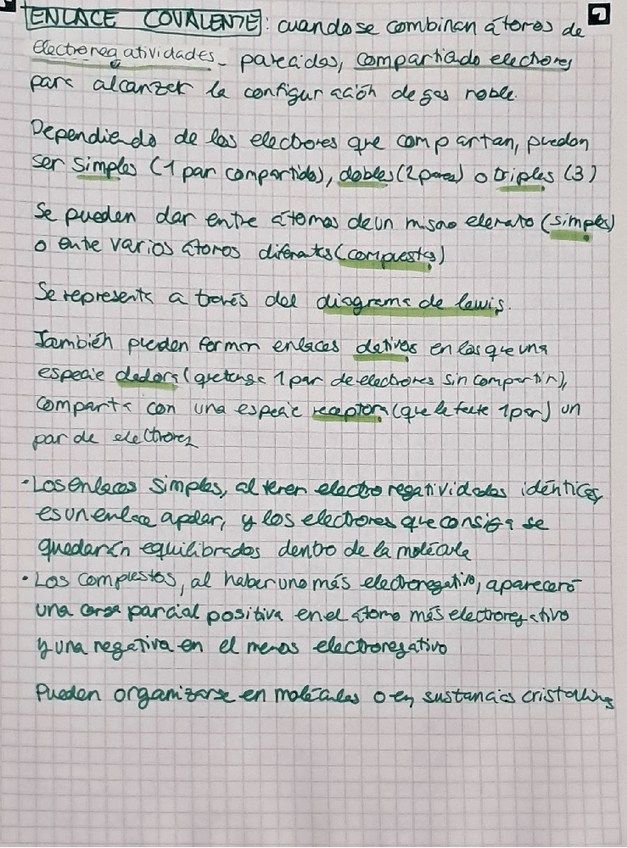 ENLACE COVALENTE: cuando se combinan átomos de
electronegatividades parecidas, compartiedo electrones
para alcanzar la configuración de gas noble.
Dependiendo de los electrones que compartan, pueden
ser simples (1 par compartido), dobles (2 pares) o triples (3)
Se pueden dar entre átomos de un mismo elemento (simples)
o entre varios átomos diferentes (compuestos)
Se representa a través del diagrama de lewis.
También pueden formar enlaces dativos en los que una
especie dadora (que tenga 1 par de electrones sin compartir),
comparta con una especie receptora (que le falte 1 par) un
par de electrones
· Los enlaces simples, al tener electronegatividades idénticas,
es un enlace apolar, y los electrones que consiga se
quedarán equilibrados dentro de la molécula
· Los compuestos, al haber uno más electronegativo, aparecerá
una carga parcial positiva en el átomo más electronegativo
y una negativa en el menos electronegativo
Pueden organizarse en moléculas o en sustancias cristalinas